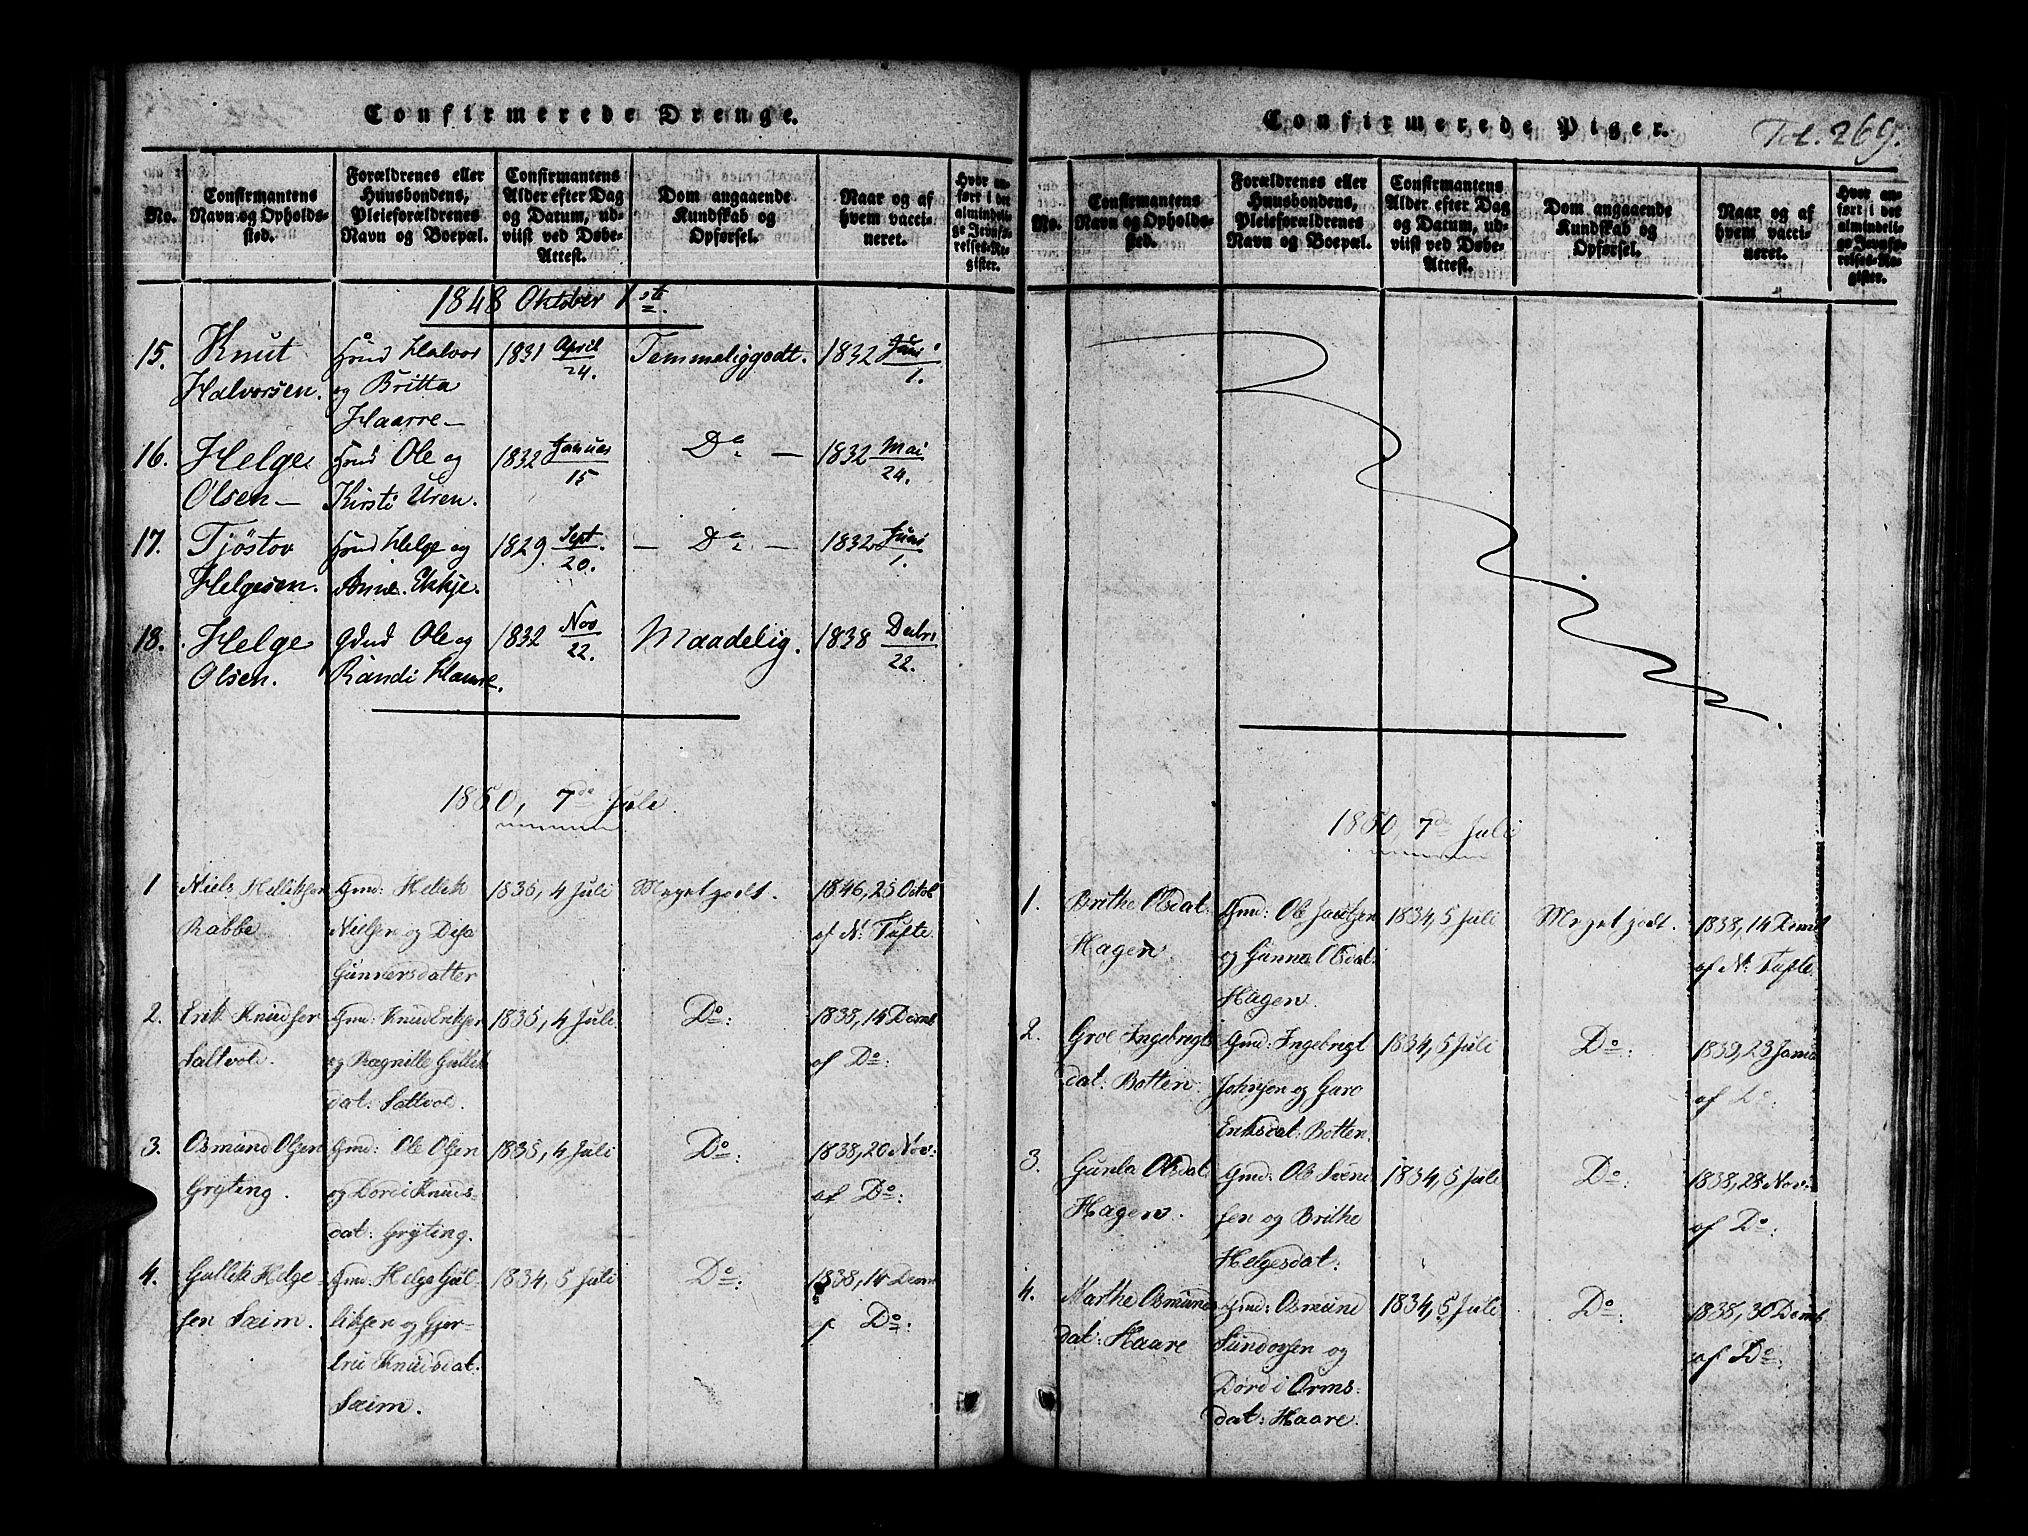 Confirmerede Drenge.
No.
Confirmantens
Navn og Opholds-
sted.
Forældrenes eller
Huusbondens,
Pleieforældrenes
Navn og Boepæl.
Confirmantens
Alder efter Dag
og Datum, ud-
viist ved Døbe-
Attest.
Dom angaaende
Kundskab og
Opførsel.
Naar og af
hvem vacci-
neret.
Hvor an-
ført i det
almindeli-
ge Jevnfø-
relses-Re-
gister.
1848 Oktober 1ste
15. Knut Halvorsen.
Halvor
og Britta
Haarre
1831 April 24.
Temmelig godt.
1832 Juni 1.
16. Helge Olsen
Ole og
Kirsti Uren.
1832 Januar 15
Do
1832 Mai 24.
17. Tjöstov Helgesen.
Helge og
Anne. Ekkje.
1829 Sept 20.
Do
1832 Juni 1.
18. Helge Olsen.
Ole og
Randi Haarre.
1832 Nov 22.
Maadelig.
1838 Decbr 22.
1850, 7de Juli
1 Niels Helliksen
Rabbe
Gmd: Hellik
Nielsen og Disa
Gunnersdatter
1835, 4 Juli
Meget godt.
1846, 25 Octob
af N: Tufte.
2. Erik Knudsen
Saltvold.
Gmd: Knud Eriksen
og Rægnille Gullik
dat: Saltvold.
1835, 4 Juli
Do:
1838, 14 Decmb
af Do:
3. Osmund Olsen
Gryting.
Gmd: Ole Olsen
og Dordi Knuds-
dat: Gryting.
1835, 4 Juli
Do:
1838, 20 Nov:
af Do:
4. Gullik Helge-
sen Saim.
Gmd: Helge Gul-
liksen og Gjer-
tru Knudsdat.
Saim.
1834, 5 Juli
Do:
1838, 14 Decm
af Do:
Confirmerede Piger.
Fol. 269.
No.
Confirmantens
Navn og Opholds-
sted.
Forældrenes eller
Huusbondens,
Pleieforældrenes
Navn og Boepæl.
Confirmantens
Alder efter Dag
og Datum, ud-
viist ved Døbe-
Attest.
Dom angaaende
Kundskab og
Opførsel.
Naar og af
hvem vacci-
neret.
Hvor an-
ført i det
almindeli-
ge Jevnfø-
relses-Re-
gister.
1850 7de Juli
1. Brithe Olsdat:
Hagen.
Gmd: Ole
og Gunne Olsdat:
Hagen.
1834, 5 Juli
Meget godt.
1838, 14 Decmb
af N: Tufte.
2. Groe Ingebregts
dat: Botten
Gmd: Ingebregt
Johnsen og Guro
Eriksdat: Botten.
1834, 5 Juli
Do:
1839, 23 Janu
af Do:
3. Gunla Olsdat
Hagen.
Gmd: Ole Svend
sen og Brithe
Helgesdat:
1834, 5 Juli
Do:
1838, 28 Nov:
af Do:
4. Marthe Osmunds
dat: Haare
Gmd: Osmund
Sundovsen og
Dordi Orms-
dat: Haare.
1834, 5 Juli
Do:
1838, 30 Decmb
af Do: